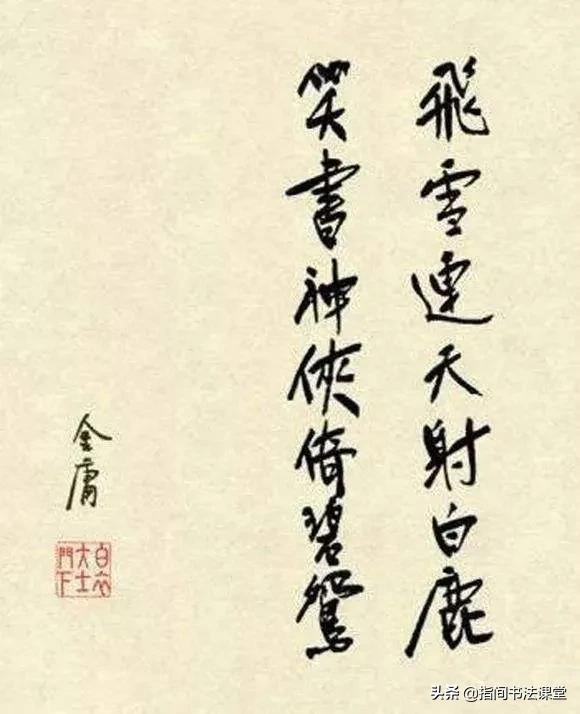 飛雪連天射白鹿
笑書神俠倚碧鴛
金庸
白衣大士門下
头条 @指间书法课堂